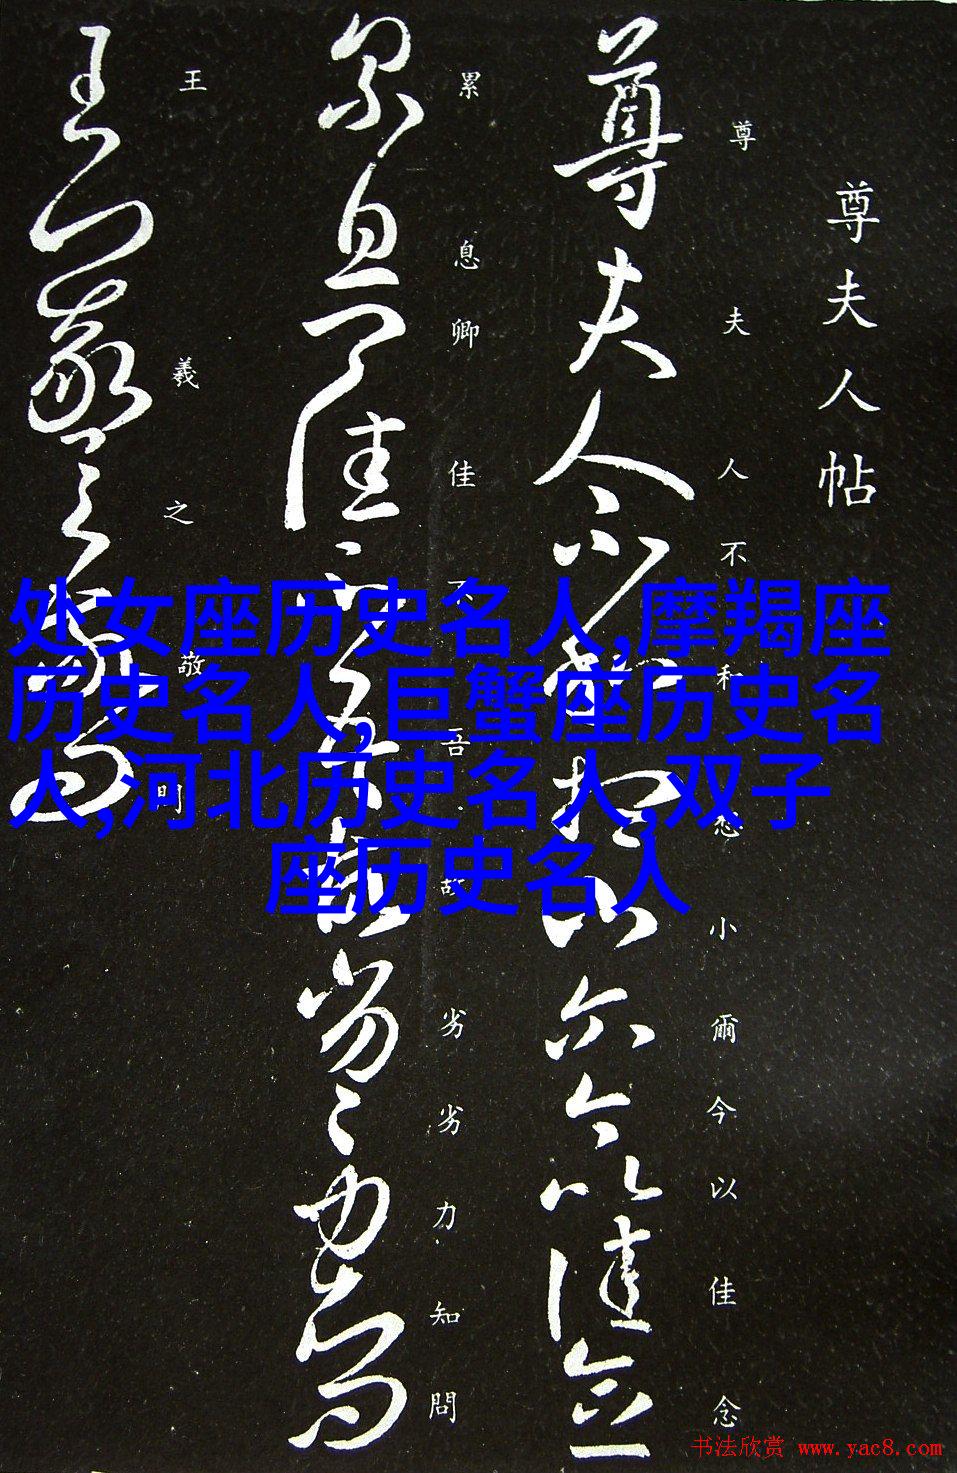 尊夫人帖
尊夫人不和想小爾今以佳念
累息卿佳不吾故劣劣力知問
王羲之敬問
处女座历史名人,摩羯座
历史名人,巨蟹座历史名
人,河北历史名人,双子
座历史名人
书法欣赏 www.yac8.com